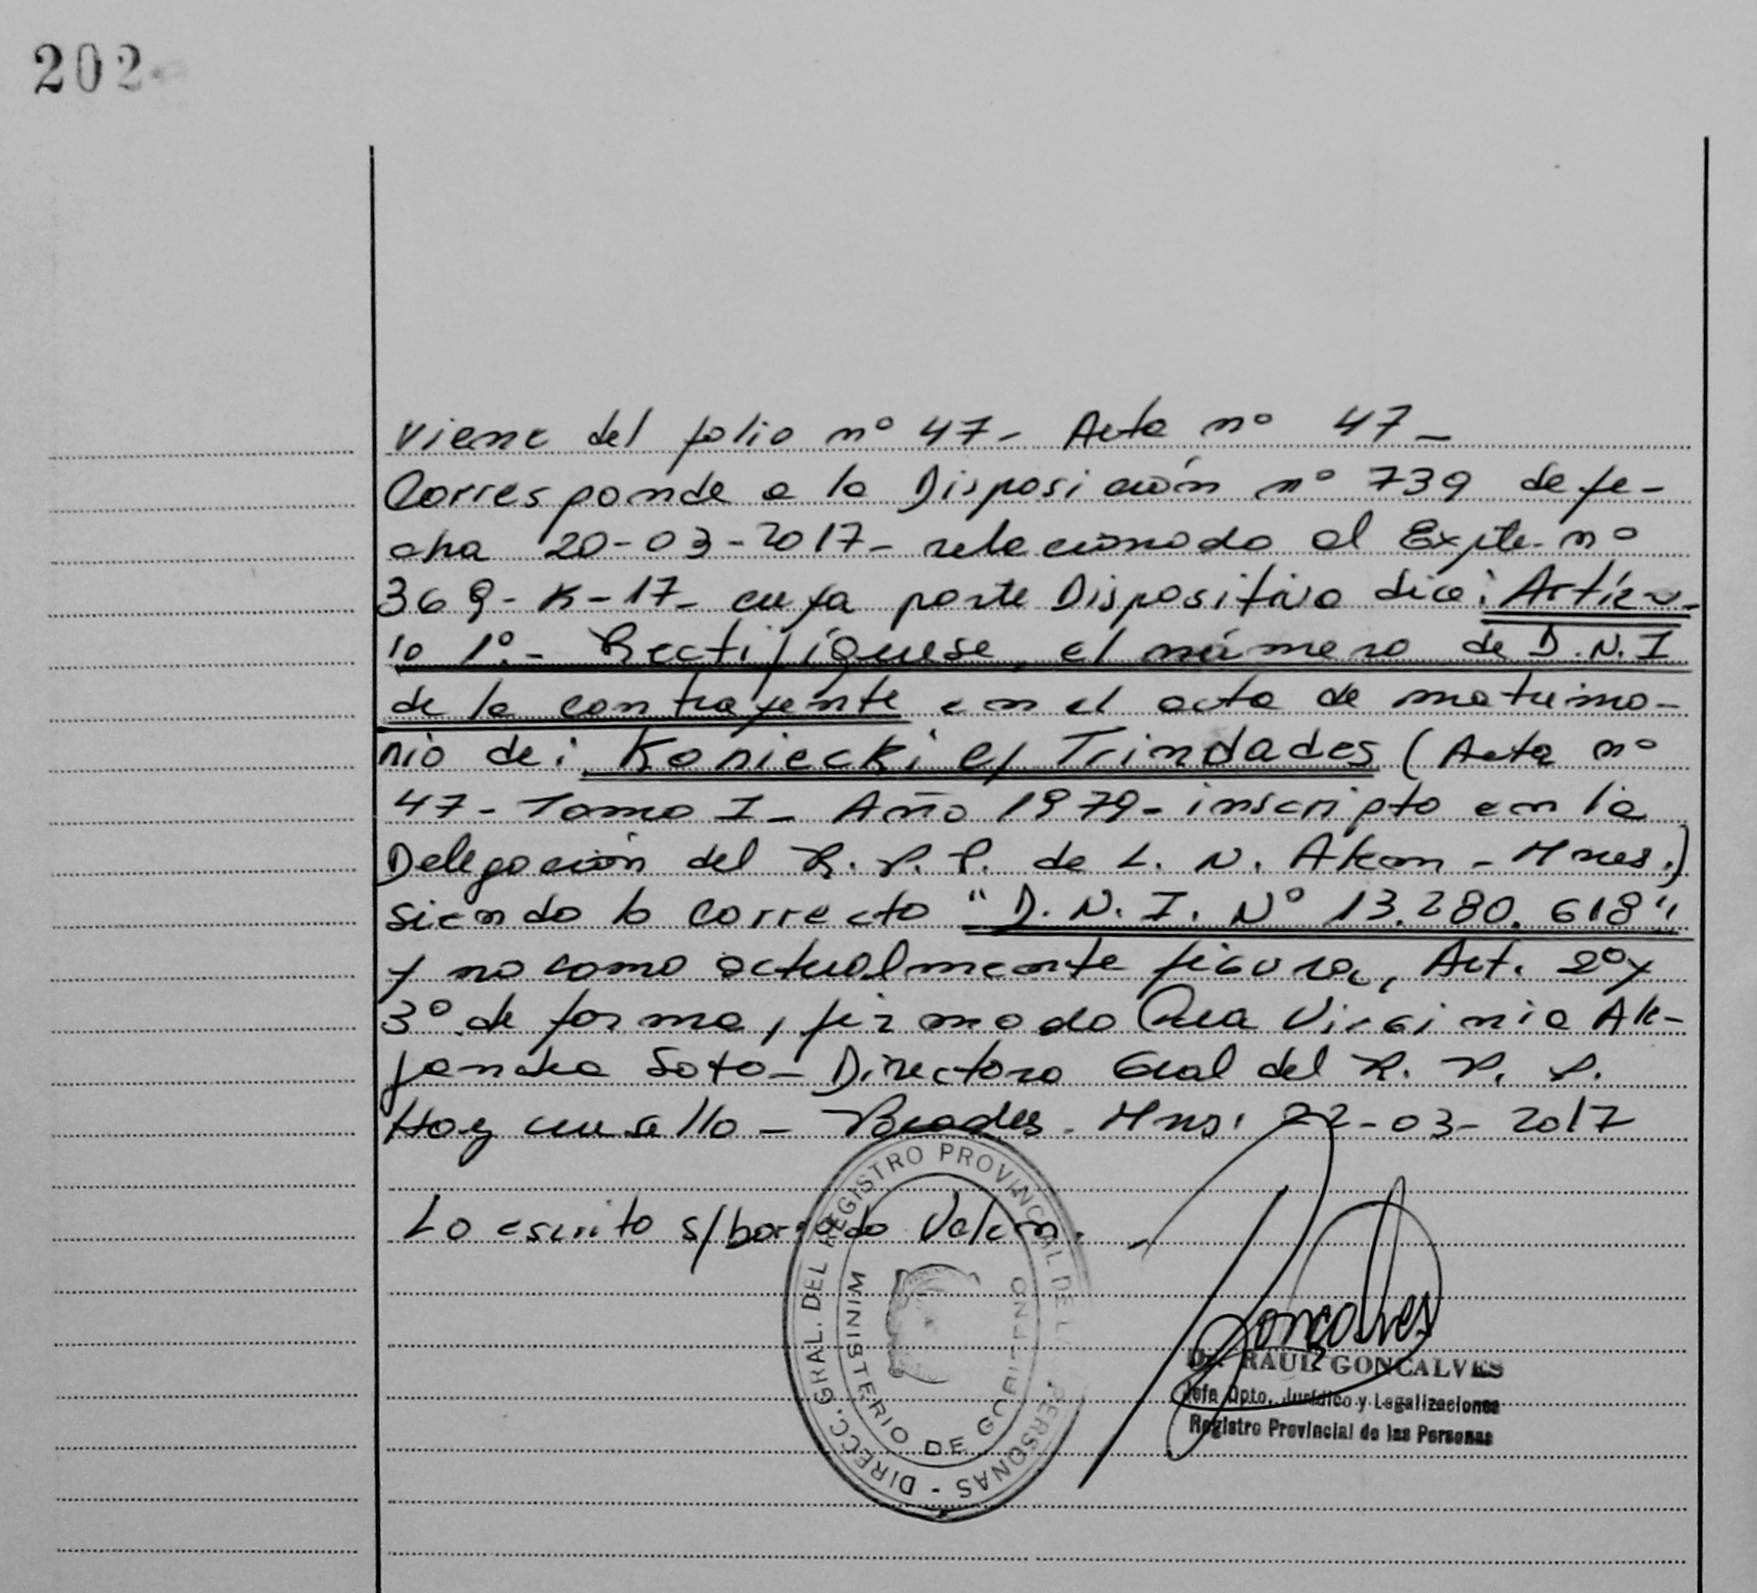 202
Viene del folio nº 47- Acta nº 47-
Corresponde a la Disposición nº 739 de fe-
cha 20-03-2017- relacionado al Expte. nº
369-K-17- cuya parte Dispositiva dice: Artícu-
lo 1º.- Rectifíquese, el número de D.N.I
de la contrayente en el acta de matrimo-
nio de: Koniecki c/ Trindades (Acta nº
47- Tomo I- Año 1979- inscripto en la
Delegación del R.P.P. de L. N. Alem - Mnes.)
siendo lo correcto "D.N.I. Nº 13.280.618"
y no como actualmente figura, Art. 2º y
3º de forma, firmado Dra Virginia Ale-
jandra Soto- Directora Gral del R. P. P.
Hoy
Posadas. Mns. 22-03-2017
Lo escrito s/borrado Valen.
DIRECC. GRAL. DEL REGISTRO PROVINCIAL DE LAS PERSONAS -
MINISTERIO DE GOBIERNO
Gonçalves
Dr. RAUL GONCALVES
Jefe Dpto. Jurídico y Legalizaciones
Registro Provincial de las Personas